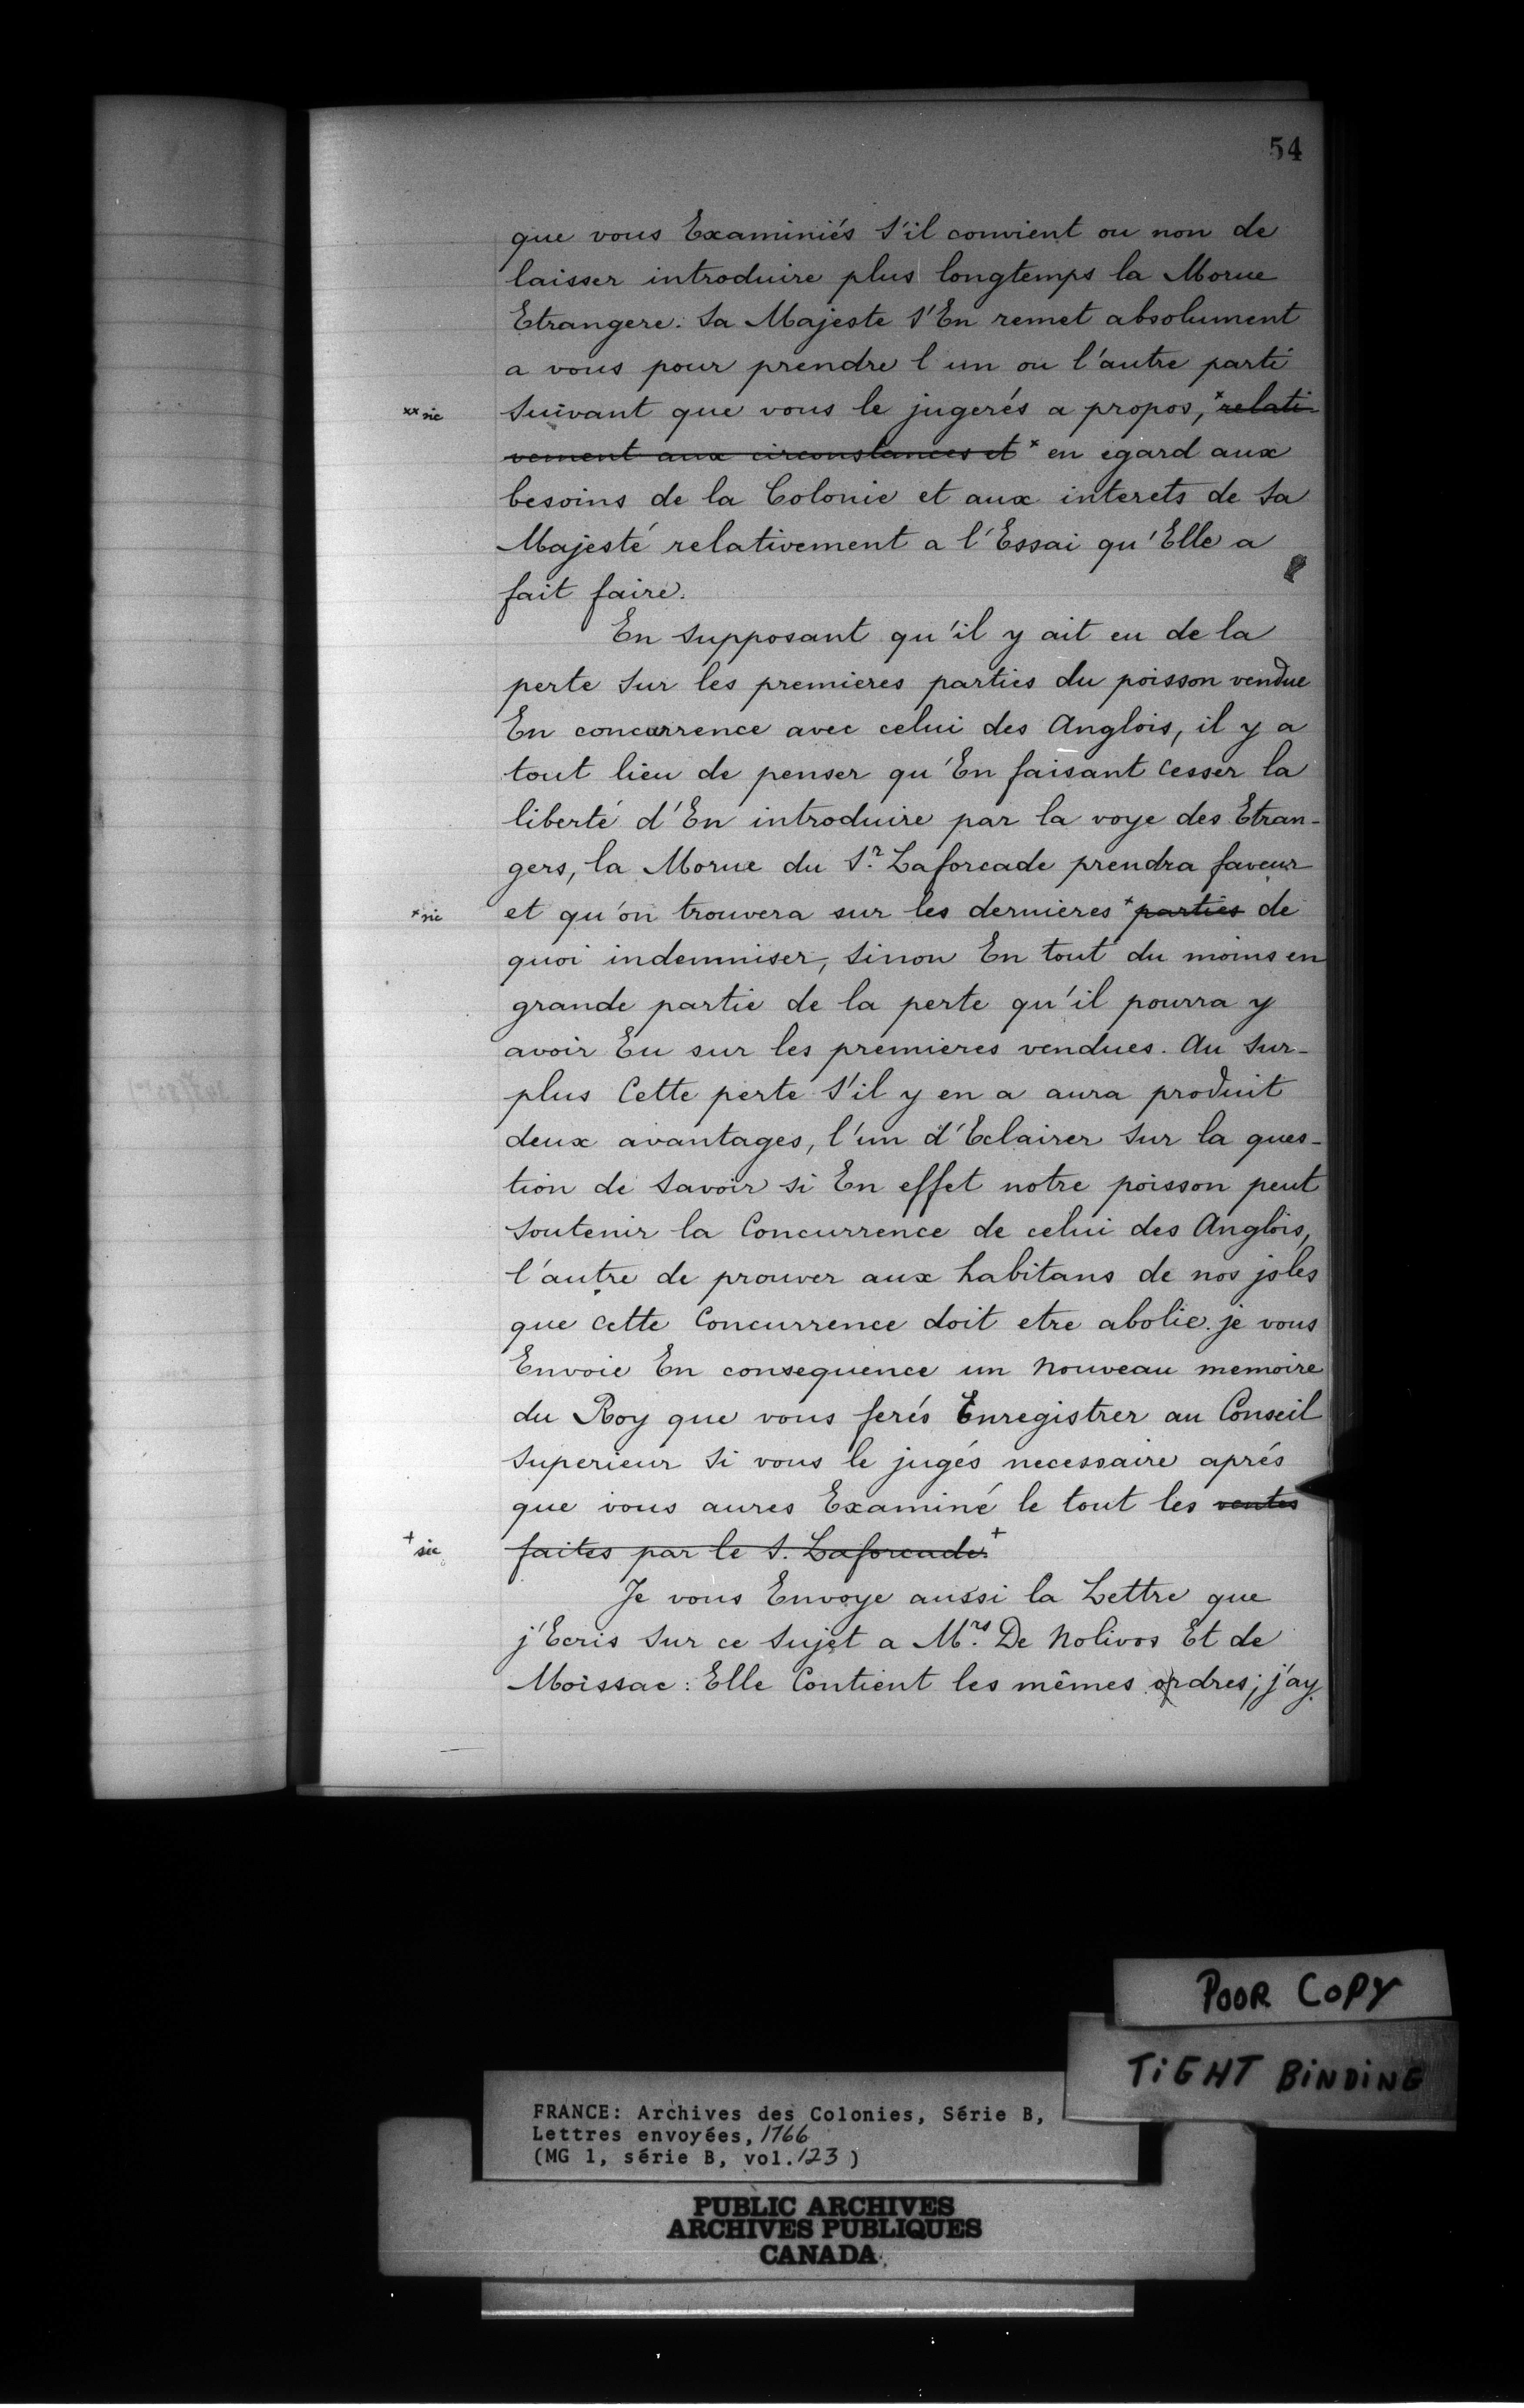 54
que vous Examiniés s'il convient ou non de
laisser introduire plus longtemps la Morue
Etrangere. Sa Majeste s'En remet absolument
a vous pour prendre l un ou l'autre parti
** sic suivant que vous le jugerés a propos, *relati-
vement aux circonstances et * en egard aux
besoins de la Colonie et aux interets de Sa
Majesté relativement a l'Essai qu'Elle a
fait faire.
En supposant qu'il y ait eu de la
perte sur les premieres parties du poisson vendue
En concurrence avec celui des Anglois, il y a
tout lieu de penser qu'En faisant cesser la
liberté d'En introduire par la voye des Etran-
gers, la Morue du Sr. Laforcade prendra faveur
* sic et qu'on trouvera sur les dernieres *parties de
quoi indemniser, sinon En tout du moins en
grande partie de la perte qu'il pourra y
avoir Eu sur les premieres vendues. Au sur-
plus Cette perte s'il y en a aura produit
deux avantages, l'un d'Eclairer sur la ques-
tion de savoir si En effet notre poisson peut
soutenir la Concurrence de celui des Anglois,
l'autre de prouver aux habitans de nos jsles
que cette Concurrence doit etre abolie. je vous
Envoie En consequence un nouveau memoire
du Roy que vous ferés Enregistrer au Conseil
superieur si vous le jugés necessaire aprés
que vous aures Examiné le tout les ventes
+ sic faites par le S. Laforcade.+
Je vous Envoye aussi la Lettre que
j'Ecris sur ce sujet a Mrs. De Nolivos Et de
Moissac : Elle Contient les mêmes ordres; j'ay
POOR COPY
TIGHT BINDING
FRANCE: Archives des Colonies, Série B,
Lettres envoyées, 1766
(MG 1, série B, vol. 123)
PUBLIC ARCHIVES
ARCHIVES PUBLIQUES
CANADA